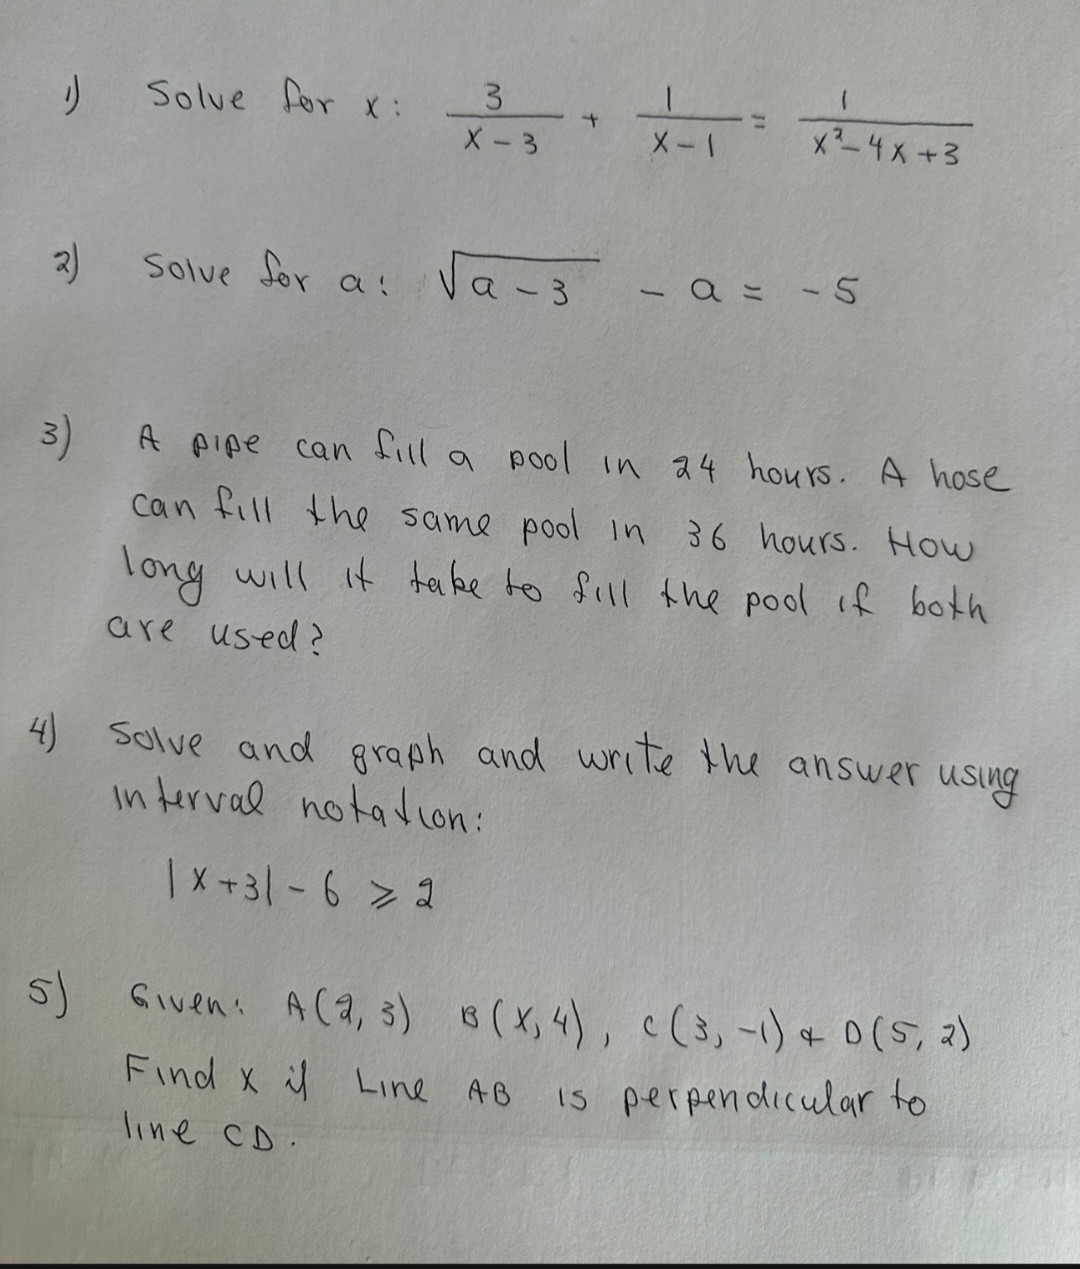 1) Solve for x: 3/(x-3) + 1/(x-1) = 1/(x²-4x+3)
2) Solve for a: √(a-3) - a = -5
3) A pipe can fill a pool in 24 hours. A hose
can fill the same pool in 36 hours. How
long will it take to fill the pool if both
are used?
4) Solve and graph and write the answer using
interval notation:
|x+3| - 6 ≥ 2
5) Given: A(2, 3) B(x, 4), C(3, -1) & D(5, 2)
Find x if Line AB is perpendicular to
line CD.